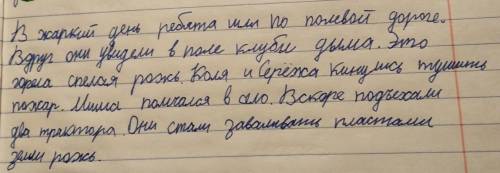 В жаркий день ребята шли по полевой дороге.
Вдруг они увидели в поле клубы дыма. Это
горела спелая рожь. Коля и Серёжа кинулись тушить
пожар. Миша помчался в село. Вскоре подъехали
два трактора. Они стали заваливать пластами
земли рожь.